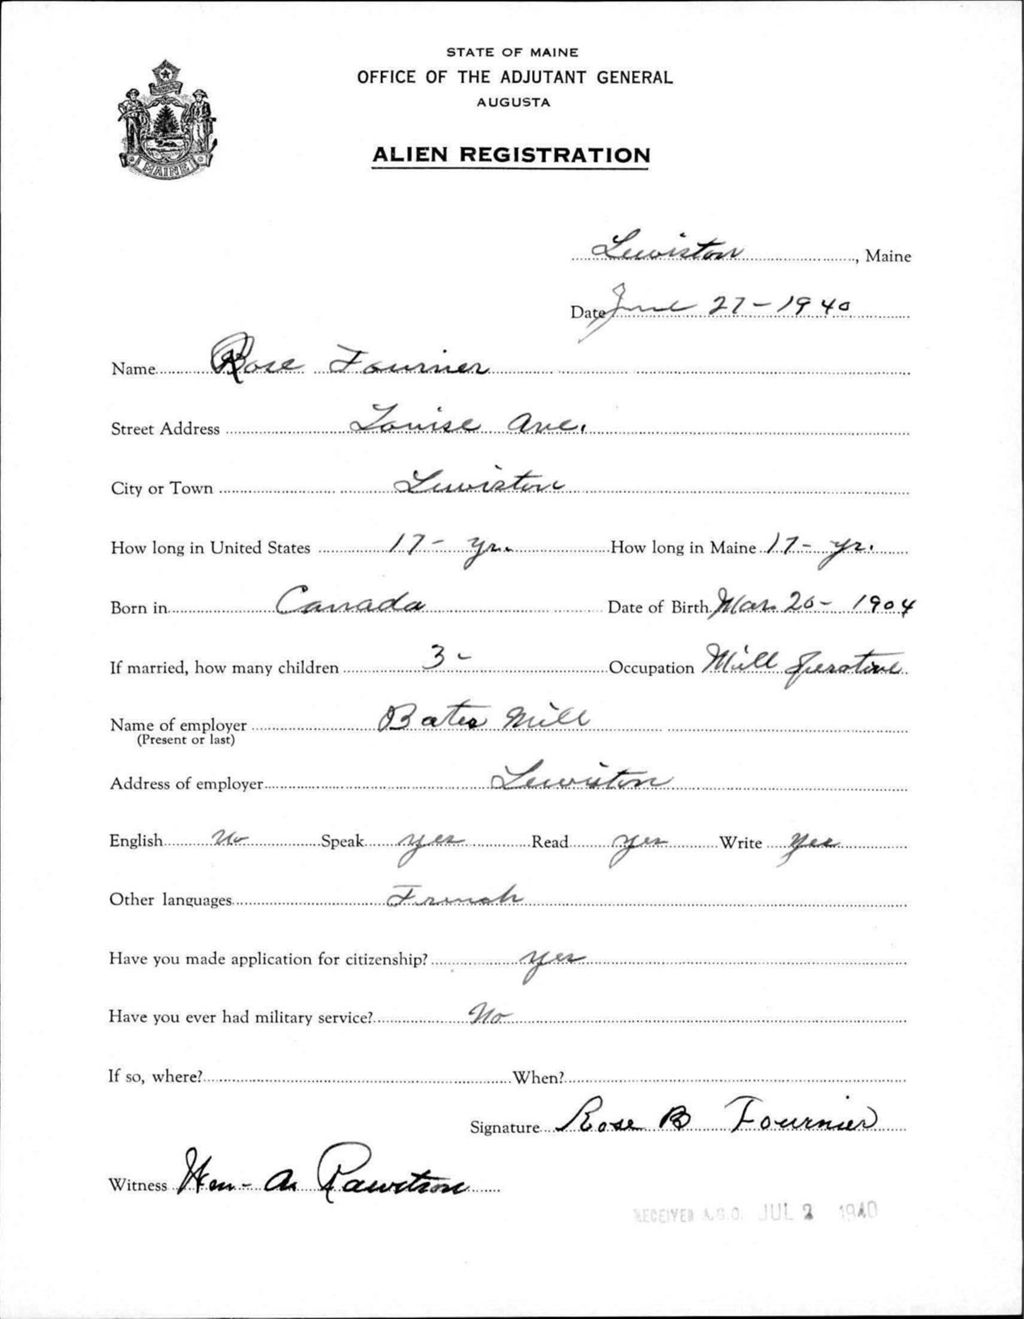 STATE OF MAINE
OFFICE OF THE ADJUTANT GENERAL
AUGUSTA
ALIEN REGISTRATION
MAINE
Lewiston, Maine
Date June 27-1940
Name Rose Fournier
Street Address Louise Ave.
City or Town Lewiston
How long in United States 17- yr. How long in Maine 17- yr.
Born in Canada Date of Birth Mar. 20- 1904
If married, how many children 3- Occupation Mill Operative
Name of employer Bates Mill
(Present or last)
Address of employer Lewiston
English No Speak yes Read yes Write yes
Other languages French
Have you made application for citizenship? yes
Have you ever had military service? No
If so, where? When?
Signature Rose B Fournier
Witness Wm- A.
RECEIVED A.G.O. JUL 2 1940